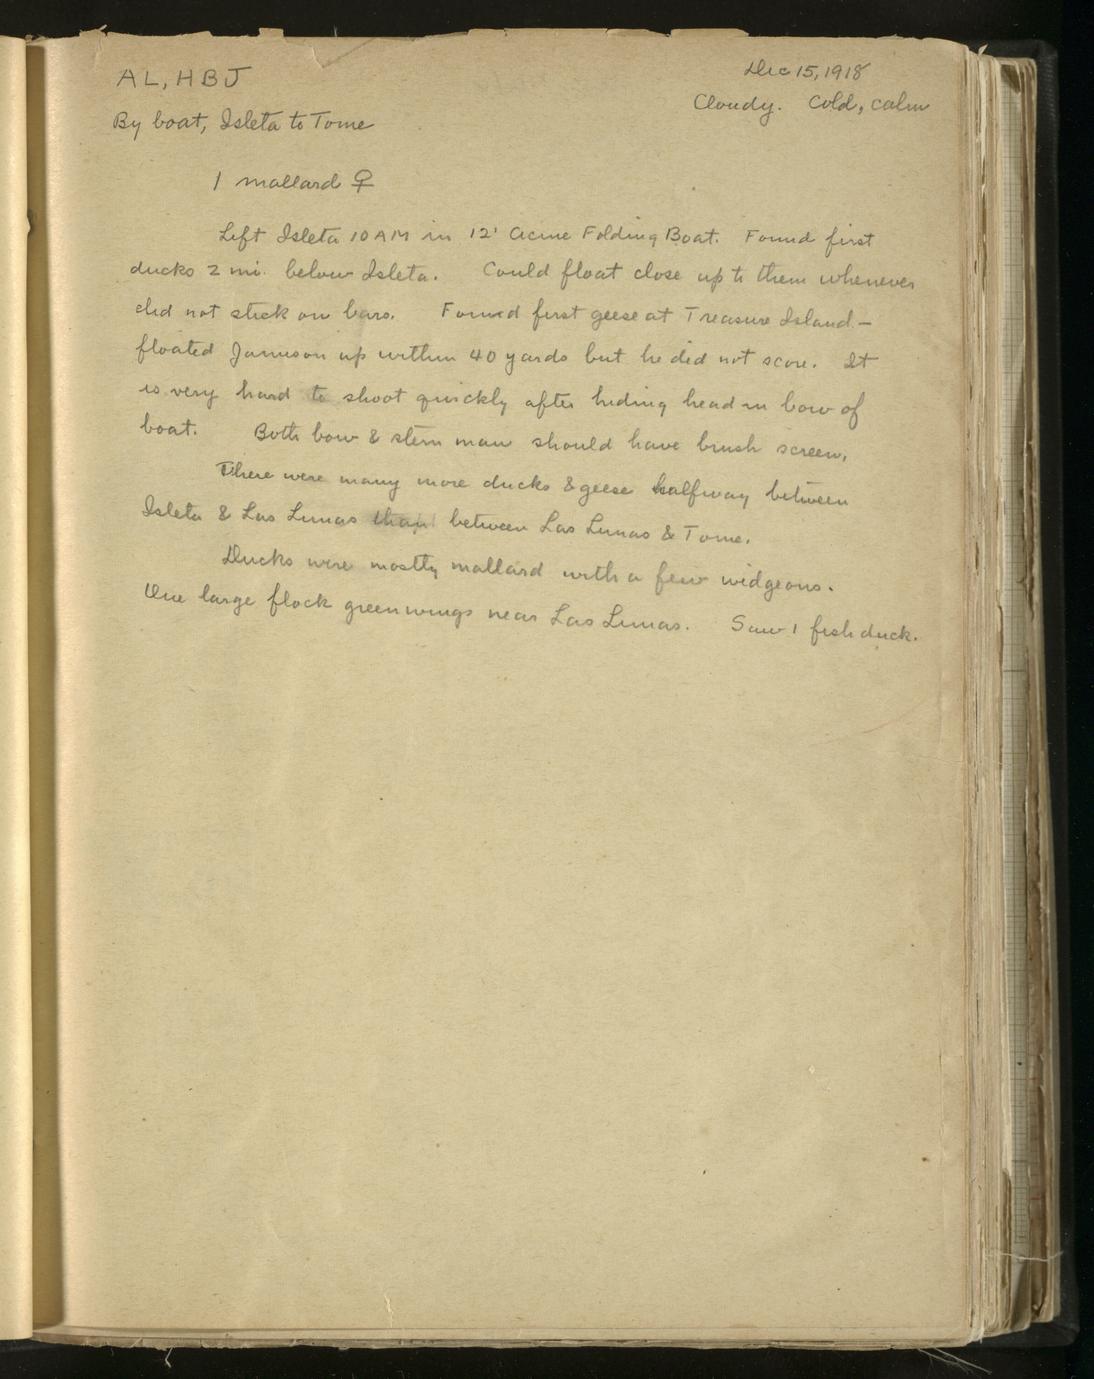 AL, HBJ
Dec 15, 1918
Cloudy. Cold, calm
By boat, Isleta to Tome
1 mallard ♀
Left Isleta 10 AM in 12' Acme Folding Boat. Found first
ducks 2 mi. below Isleta. Could float close up to them whenever
did not stick on bars. Found first geese at Treasure Island —
floated Jamison up within 40 yards but he did not score. It
is very hard to shoot quickly after hiding head in bow of
boat. Both bow & stern man should have brush screen.
There were many more ducks & geese halfway between
Isleta & Las Lunas than between Las Lunas & Tome.
Ducks were mostly mallard with a few widgeons.
One large flock greenwings near Las Lunas. Saw 1 fish duck.